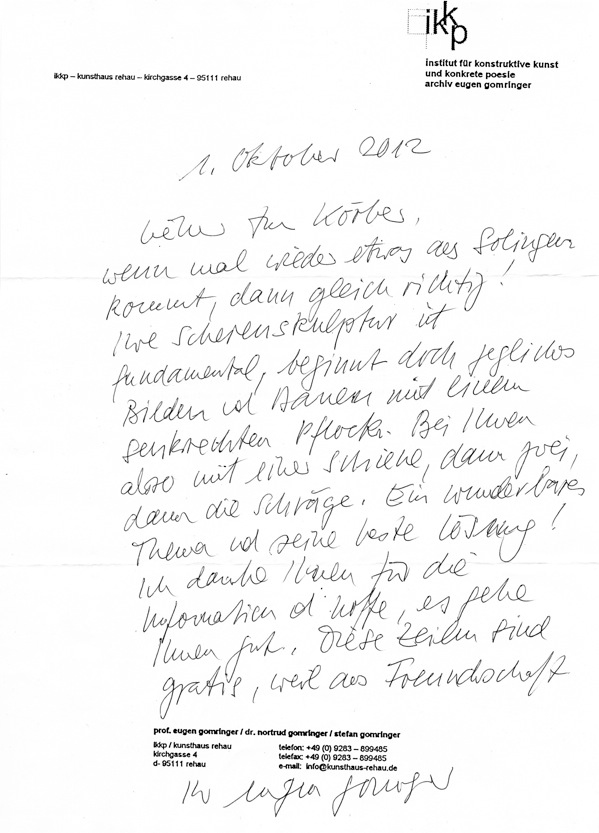 ikkp
institut für konstruktive kunst
und konkrete poesie
archiv eugen gomringer
ikkp – kunsthaus rehau – kirchgasse 4 – 95111 rehau
1. Oktober 2012
Körbes,
wenn mal wieder etwas aus Solingen
kommt, dann gleich richtig!
Ihre Scherenskulptur ist
fundamental, beginnt doch jegliches
Bilden und Bauen mit einem
senkrechten Pflock. Bei Ihnen
also mit einer Schiene, dann zwei,
dann die Schräge. Ein wunderbares
Thema und seine beste Lösung!
Ich danke Ihnen für die
Information d hoffe, es gehe
Ihnen gut. Diese Zeilen sind
gratis, weil aus Freundschaft
prof. eugen gomringer / dr. nortrud gomringer / stefan gomringer
ikkp / kunsthaus rehau
kirchgasse 4
d- 95111 rehau
telefon: +49 (0) 9283 – 899485
telefax: +49 (0) 9283 – 899485
e-mail: info@kunsthaus-rehau.de
Ihr eugen gomringer